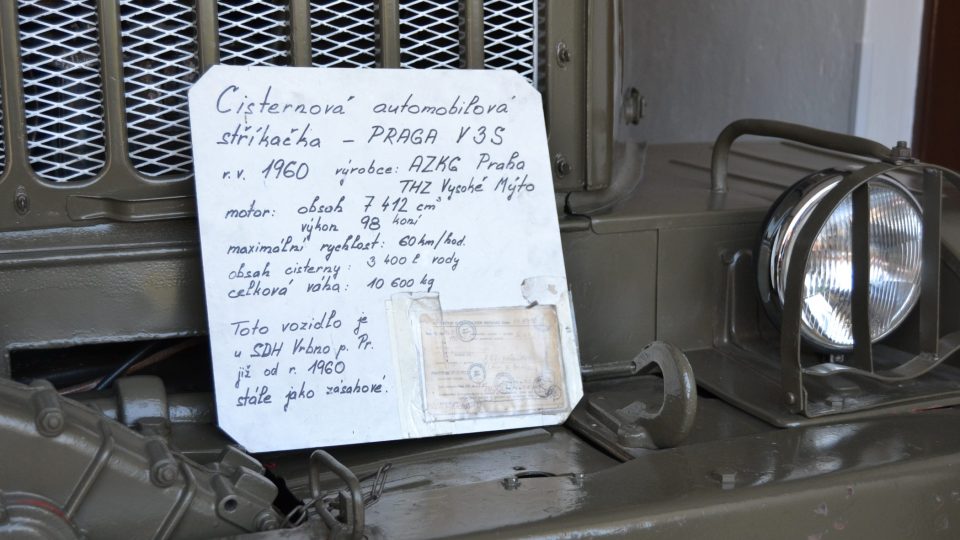 Cisternová automobilová
stříkačka - PRAGA V3S
r.v. 1960 výrobce: AZKG Praha
THZ Vysoké Mýto
motor: obsah 7 412 cm³
výkon 98 koní
maximální rychlost: 60km/hod.
obsah cisterny: 3 400 l vody
celková váha: 10 600 kg
Toto vozidlo je
u SDH Vrbno p. Pr.
již od r. 1960
stále jako zásahové.